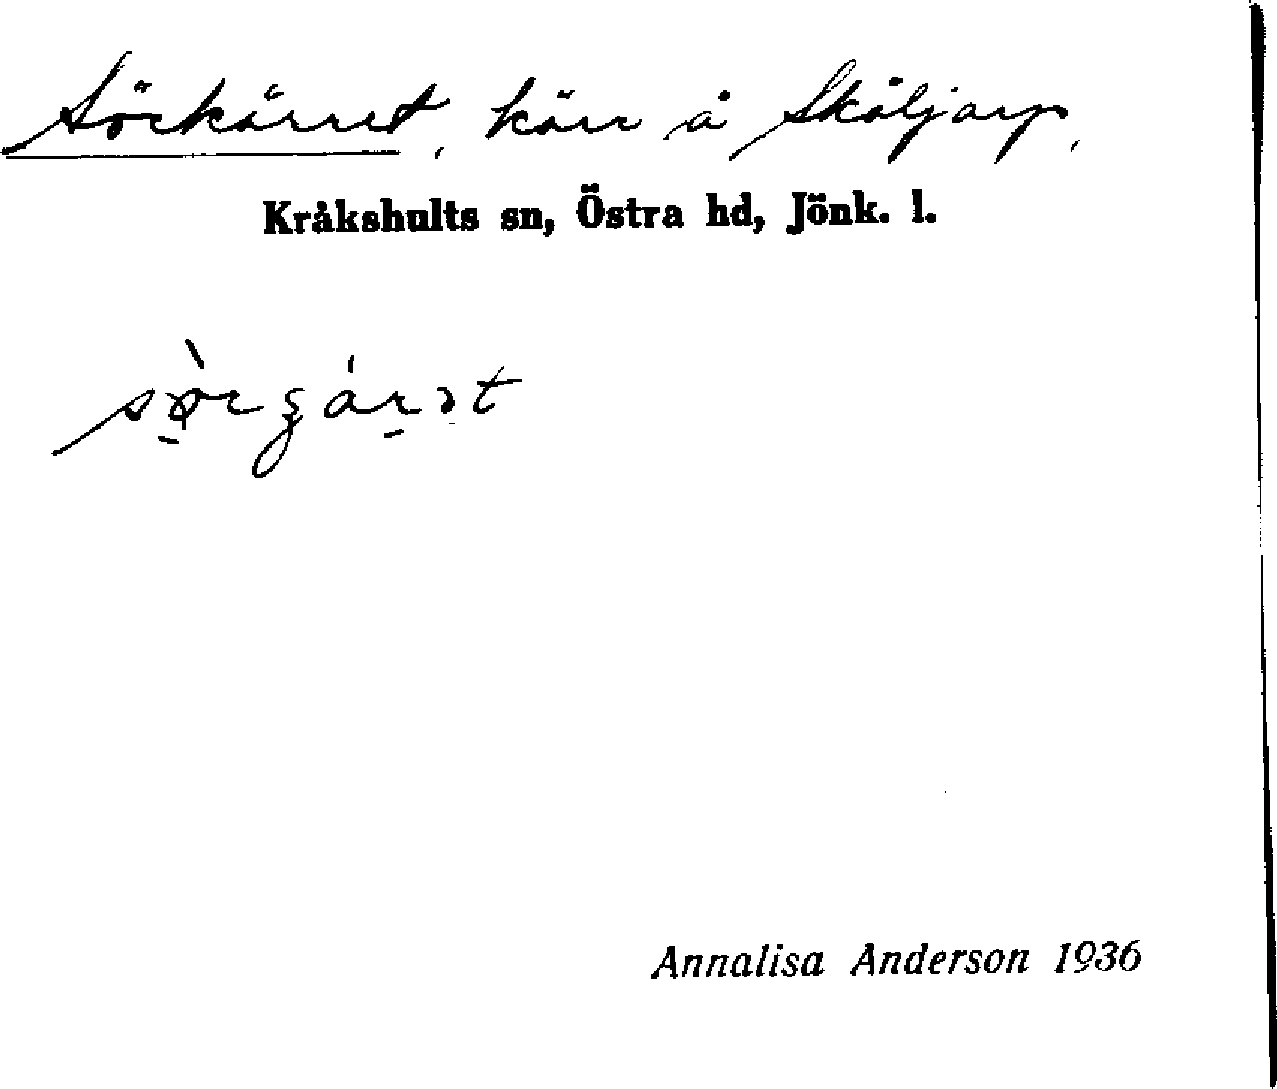 Sörkärret, kärr å Sköljarp,
Kråkshults sn, Östra hd, Jönk. l.
Annalisa Anderson 1936